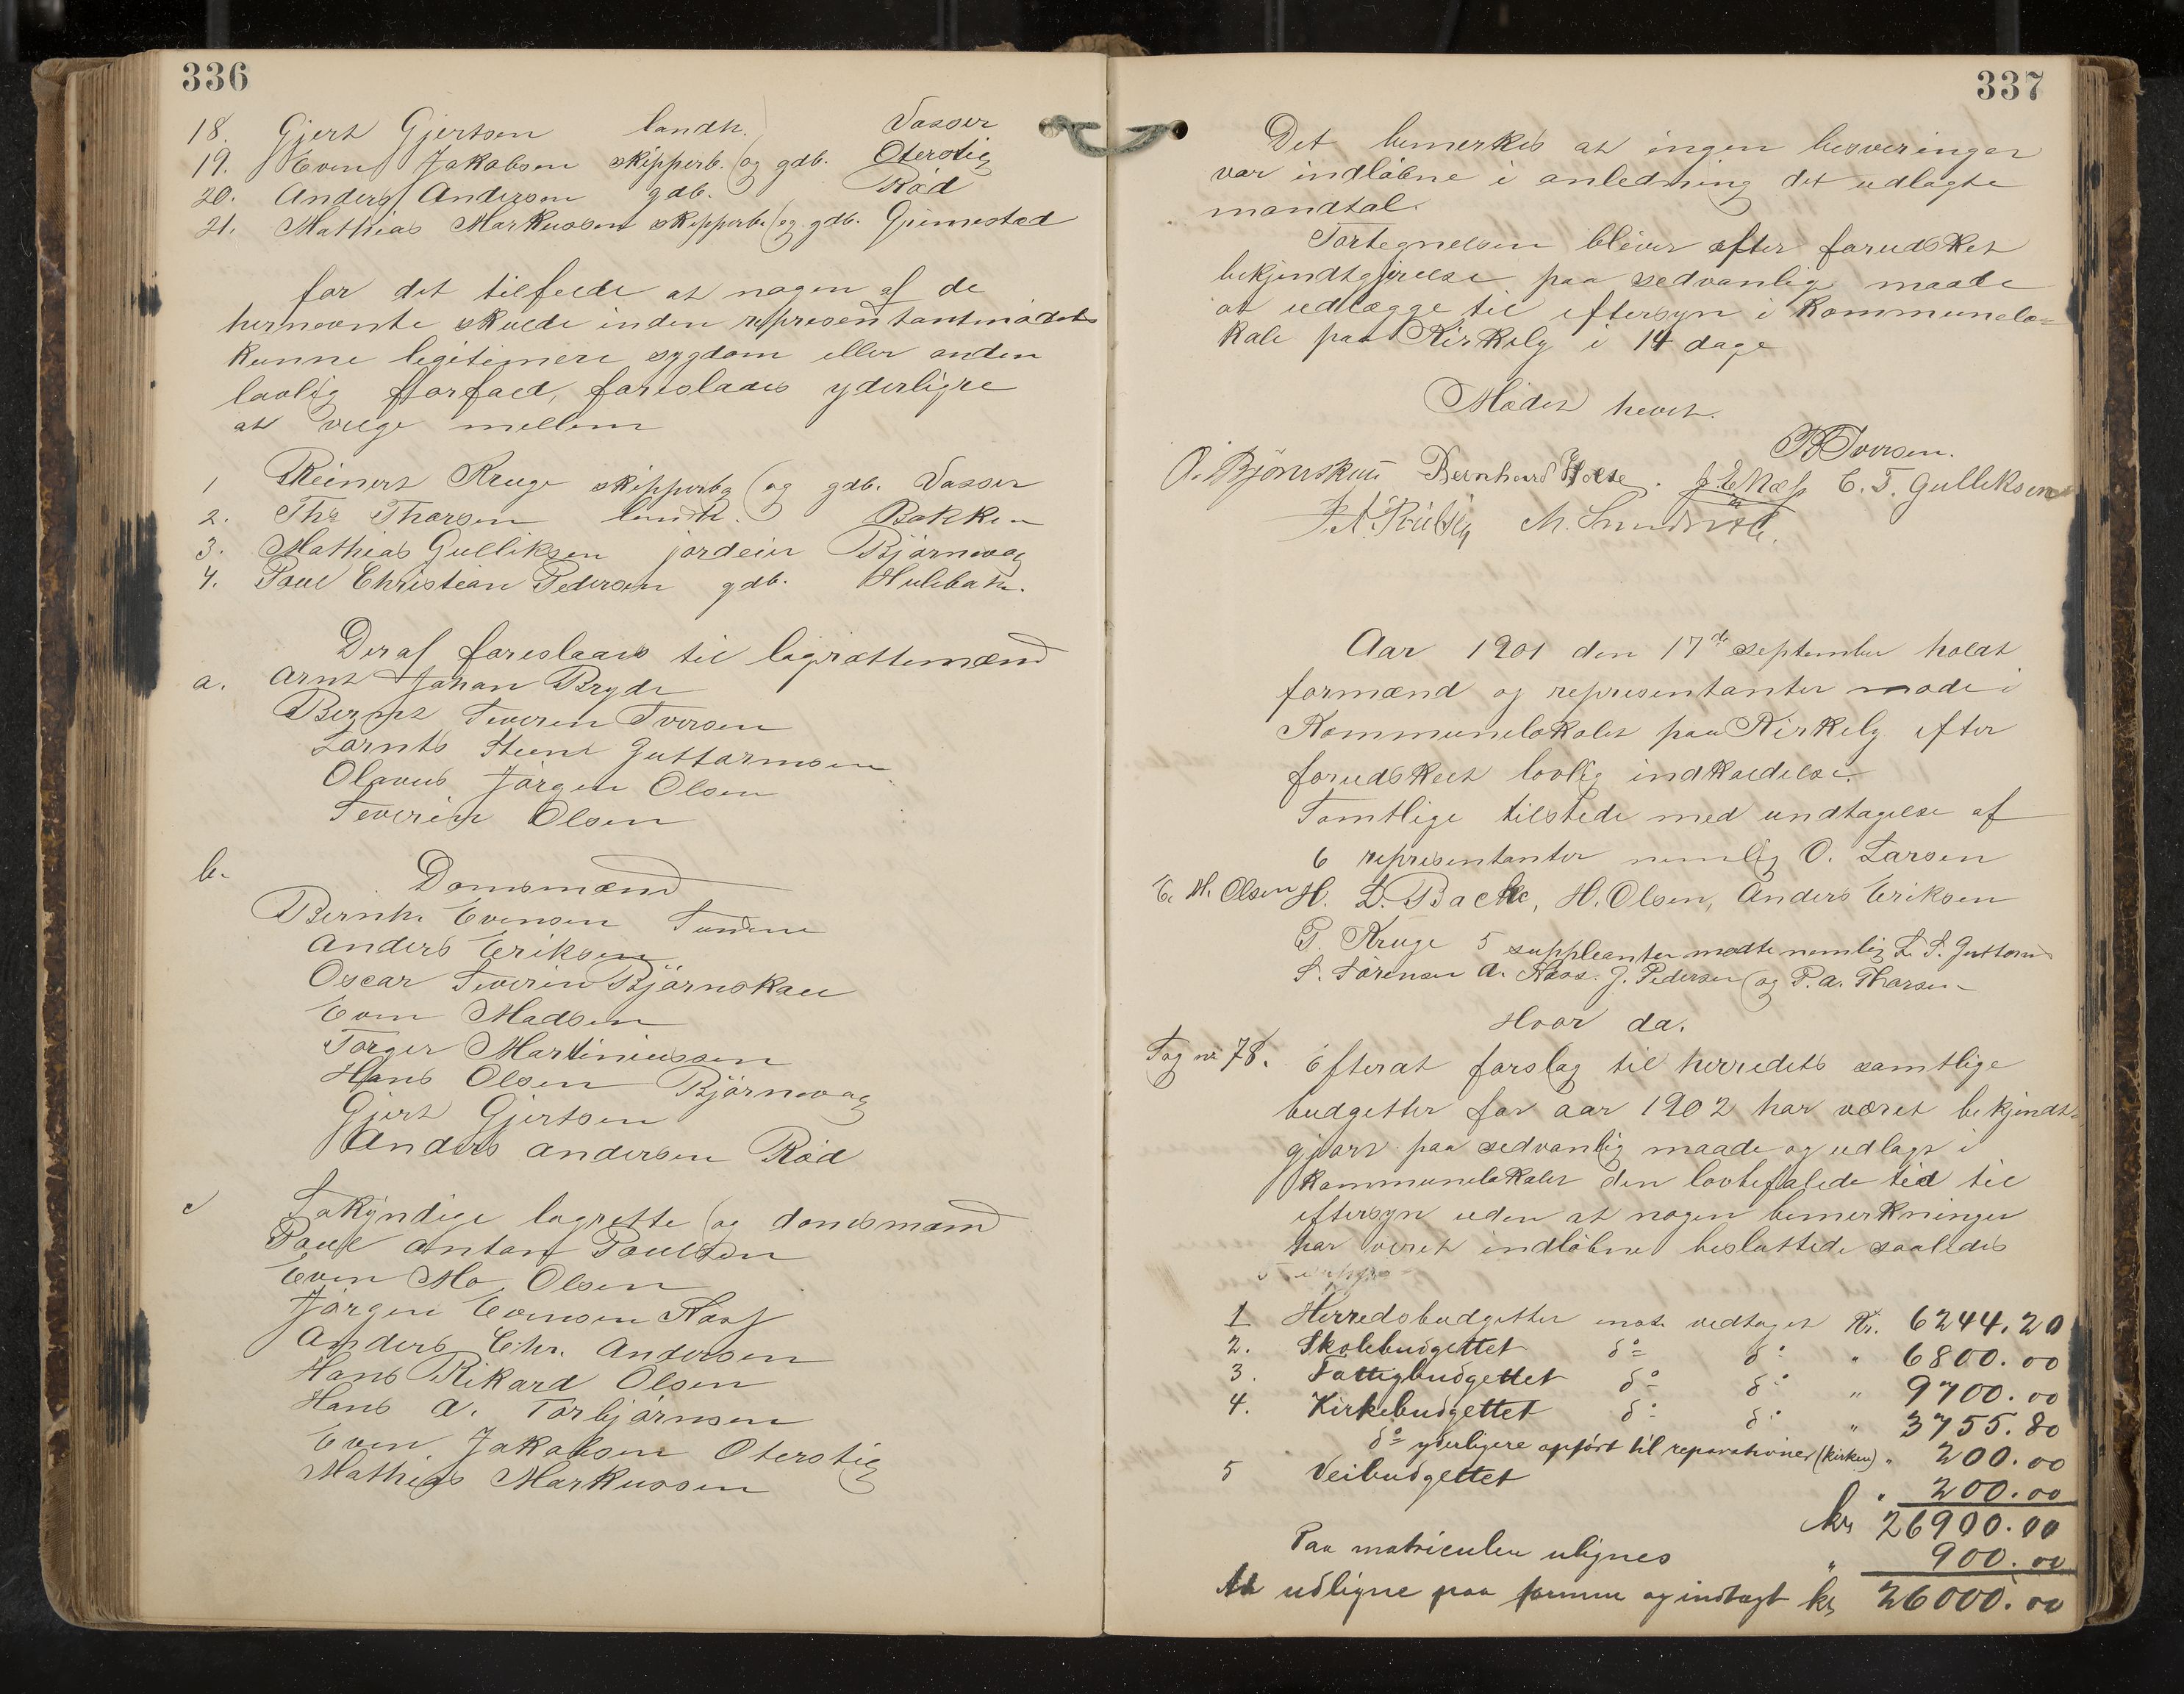 336
18. Gjert Gjertsen landh. Vasser
19. Even Jakobsen skipperb. og gdb. Oterstig
20. Anders Andersen gdb. Röd
21. Mathias Markussen skipperb. og gdb. Grimestad
for det tilfelde at nogen af de
hernevnte skulde inden representantmödet
kunne legitimere sygdom eller anden
lovlig forfald, foreslaaes yderligre
at velge mellem
1 Reinert Kruge skipperbg og gdb. Vasser
2. Ths Thorsen landh. Bakken
3. Mathias Gulliksen jordeier Björnevag
4. Poul Christian Pedersen gdb. Hulebak.
Deraf foreslaaes til lagrettemænd
a. Arnt Johan Bryde
Bernt Severin Iversen
Lornts Steene Guttormsen
Olavus Jörgen Olsen
Severin Olsen
b. Domsmænd
Bernh. Evensen Sundene
Anders Eriksen
Oscar Severin Björnskau
Even Madsen
Torger Martiniussen
Hans Olsen Björnevag
Gjert Gjertsen
Anders Andersen Röd
c Sakyndige lagrette og domsmænd
Poul Anton Poulsen
Even Ma. Olsen
Jörgen Evensen Näss
Anders Chr. Andersen
Hans Rikard Olsen
Hans A. Torbjörnsen
Even Jakobsen Oterstig
Mathias Markussen
337
Det bemerkes at ingen besveringer
var indlöbne i anledning det udlagte
mandtal.
Fortegnelsen bliver efter forudsket
bekjendtgjörelse paa sedvanlig maade
at udlægge til eftersyn i kommunelo=
kale paa Kirkely i 14 dage
Mödet hevet.
B Iversen.
O. Björnskau Bernhard Holse. J. L. Næss E. T. Gulliksen
M. Sundene.
Aar 1901 den 17de september holdt
formænd og representanter möde i
Kommunelokalet paa Kirkely efter
forudskeet lovlig indkaldelse.
Samtlige tilstede med undtagelse af
6 representanter nemlig O. Larsen
E. M. Olsen H. L. Bache, H. Olsen, Anders Eriksen
P. Kruge 5 suppleanter mödte nemlig L. S. Guttorms
S. Sörensen A. Aaos. J. Pedersen og P. A. Thorsen
Hvor da.
Sag nr 78. Efterat forslag til herredets samtlige
budgetter for aar 1902 har været bekjendt=
gjort paa sedvanlig maade og udlagt i
kommunelokalet den lovbefalede tid til
eftersyn uden at nogen bemerkninger
har været indlöbne besluttede saaledes
1 Herredsbudgettet enst. vedtaget Kr. 6244.20
2. Skolebudgettet do do " 6800.00
3. Fattigbudgettet do do " 9700.00
4. Kirkebudgettet do do " 3755.80
do yderligere opført til reparationer (kirken) " 200.00
5 Veibudgettet " 200.00
kr 26900.00
Paa matriculen ulignes " 900.00
At udligne paa formue og indtægt kr 26000.00